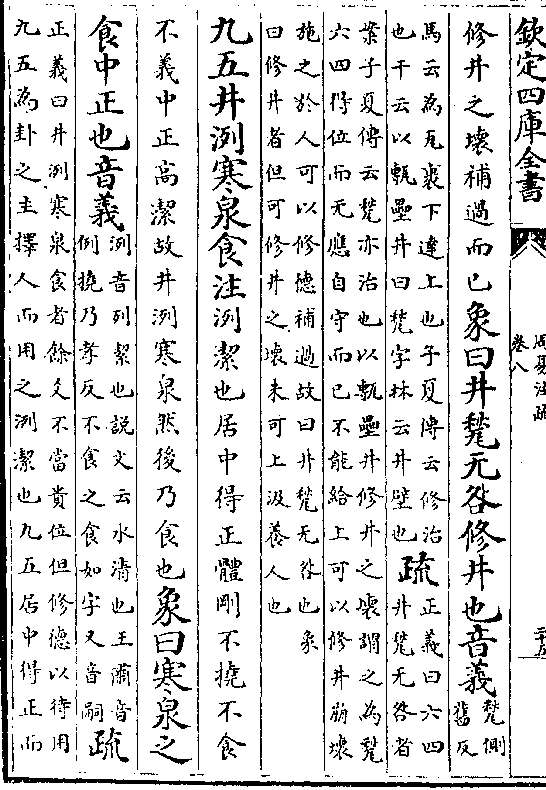 欽定四庫全書
周易注疏
卷八
二十五
修井之壞補過而已象曰井甃无咎修井也音義甃側
舊反
馬云為瓦裹下達上也子夏傳云修治
也干云以甎壘井曰甃字林云井壁也疏正義曰六四
井甃无咎者
案子夏傳云甃亦治也以甎壘井修井之壞謂之為甃
六四得位而无應自守而已不能給上可以修井崩壞
施之於人可以修德補過故曰井甃无咎也象
曰修井者但可修井之壞未可上汲養人也
九五井洌寒泉食注洌潔也居中得正體剛不撓不食
不義中正高潔故井洌寒泉然後乃食也象曰寒泉之
食中正也音義洌音列潔也說文云水清也王肅音
例撓乃孝反不食之食如字又音嗣疏
正義曰井洌寒泉食者餘爻不當貴位但修德以待用
九五為卦之主擇人而用之洌潔也九五居中得正而